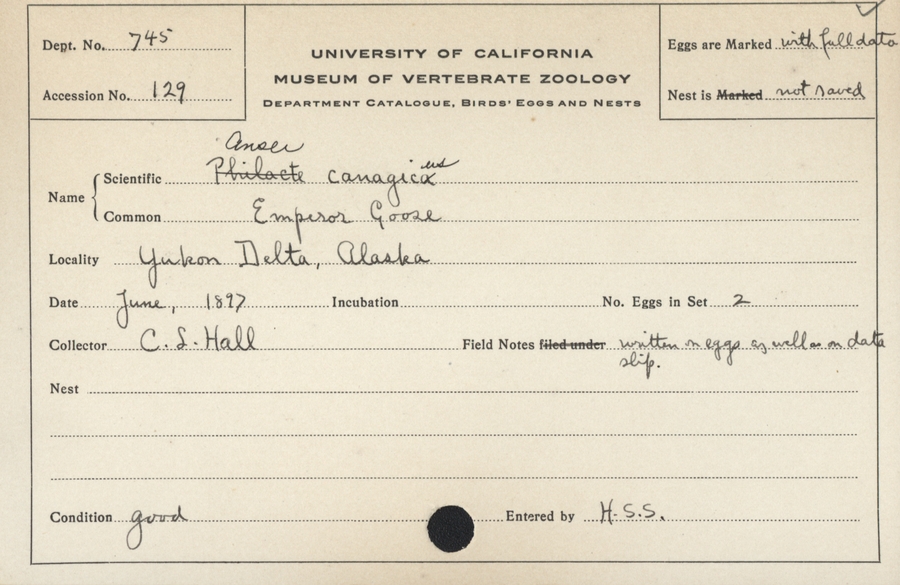 Dept. No. 745
Accession No. 129
UNIVERSITY OF CALIFORNIA
MUSEUM OF VERTEBRATE ZOOLOGY
DEPARTMENT CATALOGUE, BIRDS' EGGS AND NESTS
Eggs are Marked with full data
Nest is Marked not saved
Anser
Name Scientific Philacte canagica us
Common Emperor Goose
Locality Yukon Delta, Alaska
Date June, 1897 Incubation No. Eggs in Set 2
Collector C. L. Hall Field Notes filed under written on eggs as well as on data
slip.
Nest
Condition good Entered by H.S.S.